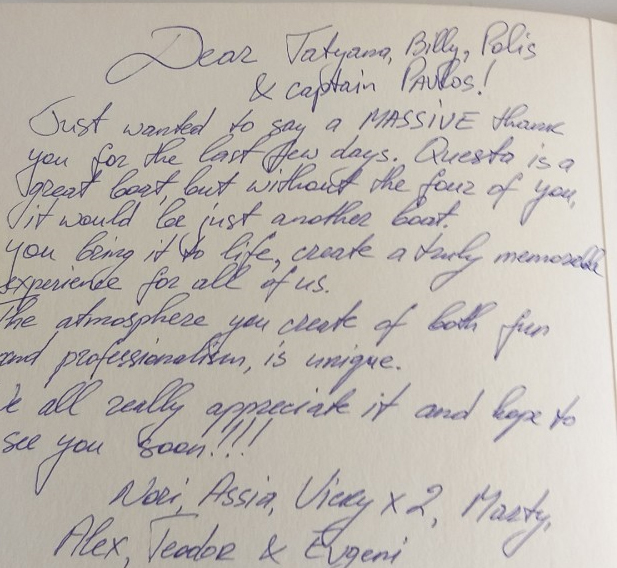 Dear Tatyana, Billy, Polis
& captain PAVLOS!
Just wanted to say a MASSIVE thank
you for the last few days. Questa is a
great boat, but without the four of you,
it would be just another boat.
You bring it to life, create a truly memorable
experience for all of us.
The atmosphere you create of both fun
and professionalism, is unique.
We all really appreciate it and hope to
see you soon!!!!
Nori, Assia, Vicky x 2, Marty,
Alex, Teodor & Evgeni